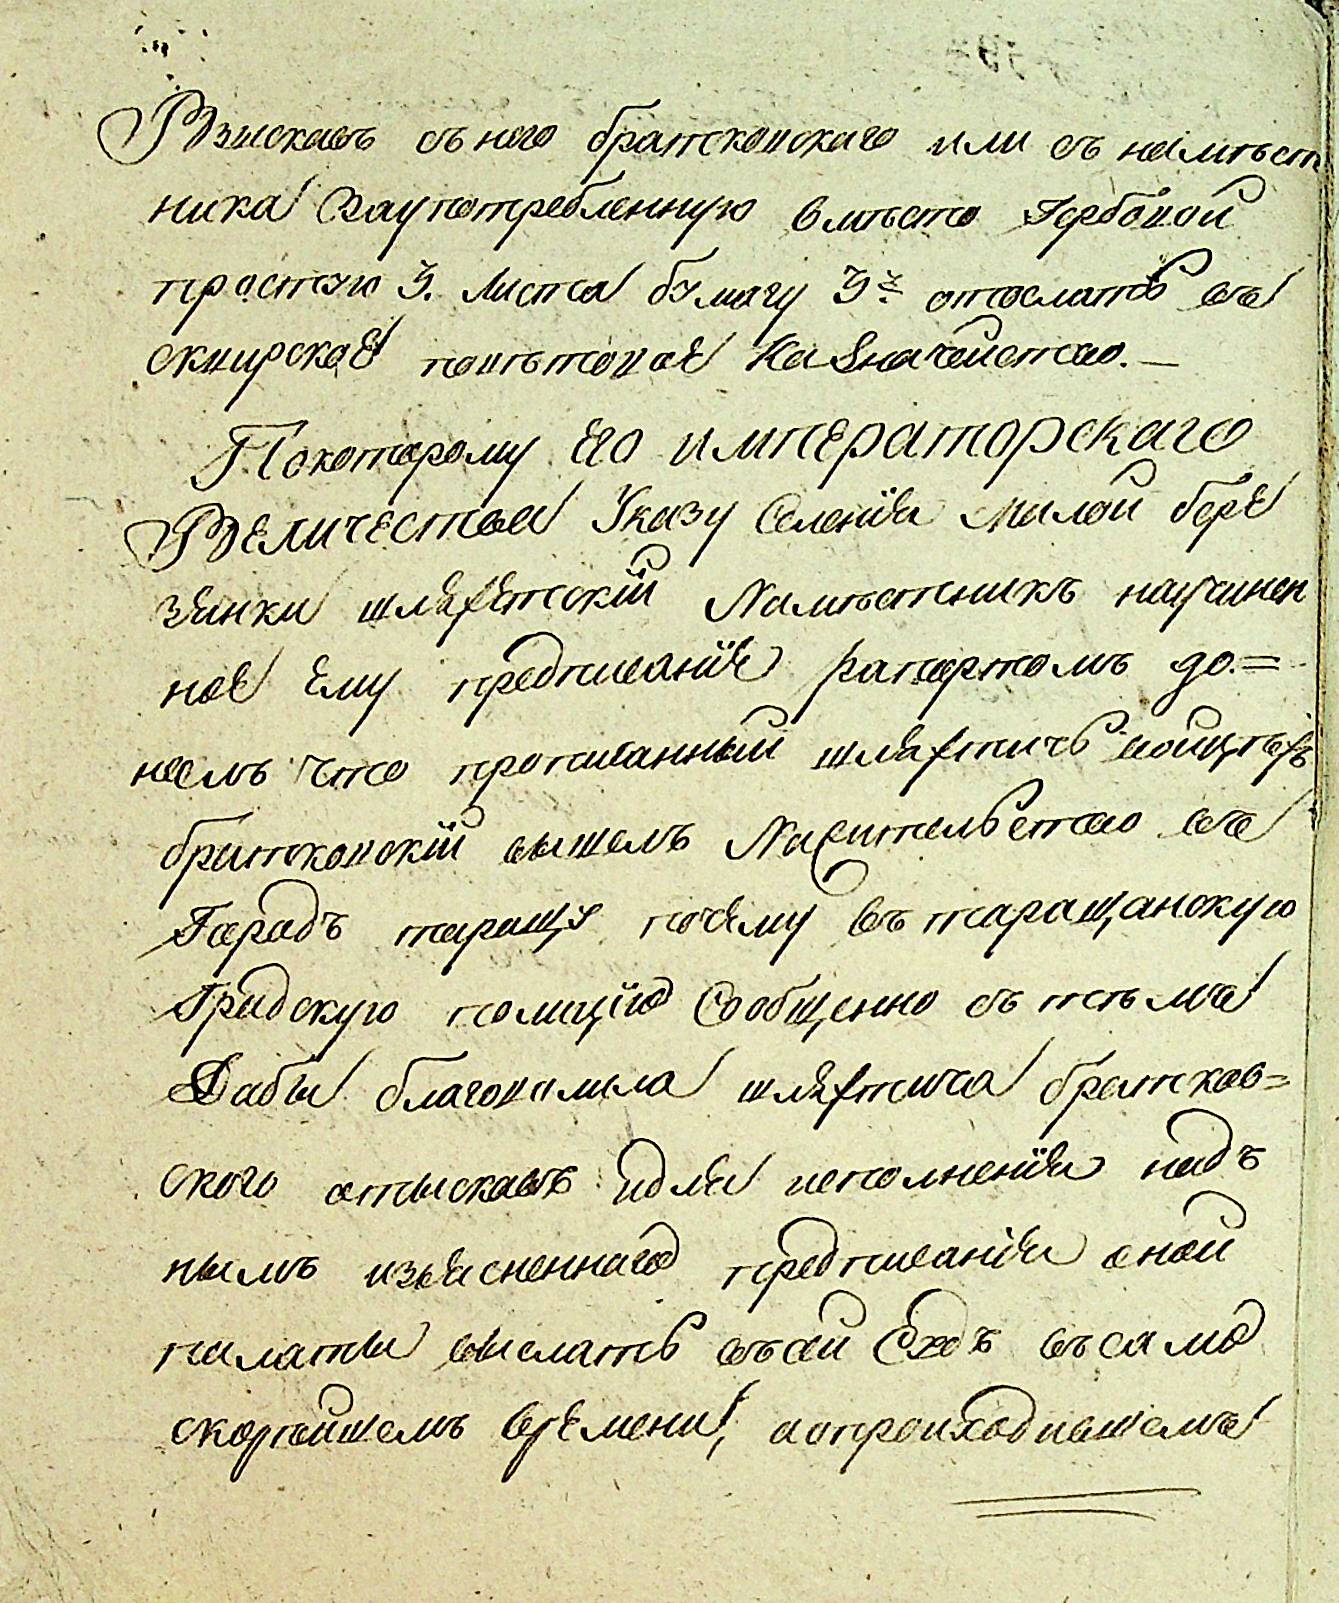 Взыскавъ съ него братковскаго или съ намѣст
ника Заупотребленную вмѣсто Гербовой
простую 3. листа бумагу 3ъ отослать въ
сквирское повѣтовое Казначейство. —
Покоторому Его императорскаго
Величества Указу Селенія малой бере
зянки шляхетскій Намѣстникъ научинен
ное ему предписаніе рапортомъ до=
несъ что прописанный шляхтичь войцѣхъ
братковскій вышелъ Нажительство въ
Городъ таращу почему въ таращанскую
Градскую полицію Сообщенно съ тѣмъ
Дабы благоволила шляхтича братков=
ского отыскавъ идля исполненія над
нымъ изъясненнаго предписанія оной
палаты выслать въсей Судъ въсамо
скорѣйшемъ времени, аопроизходившемъ